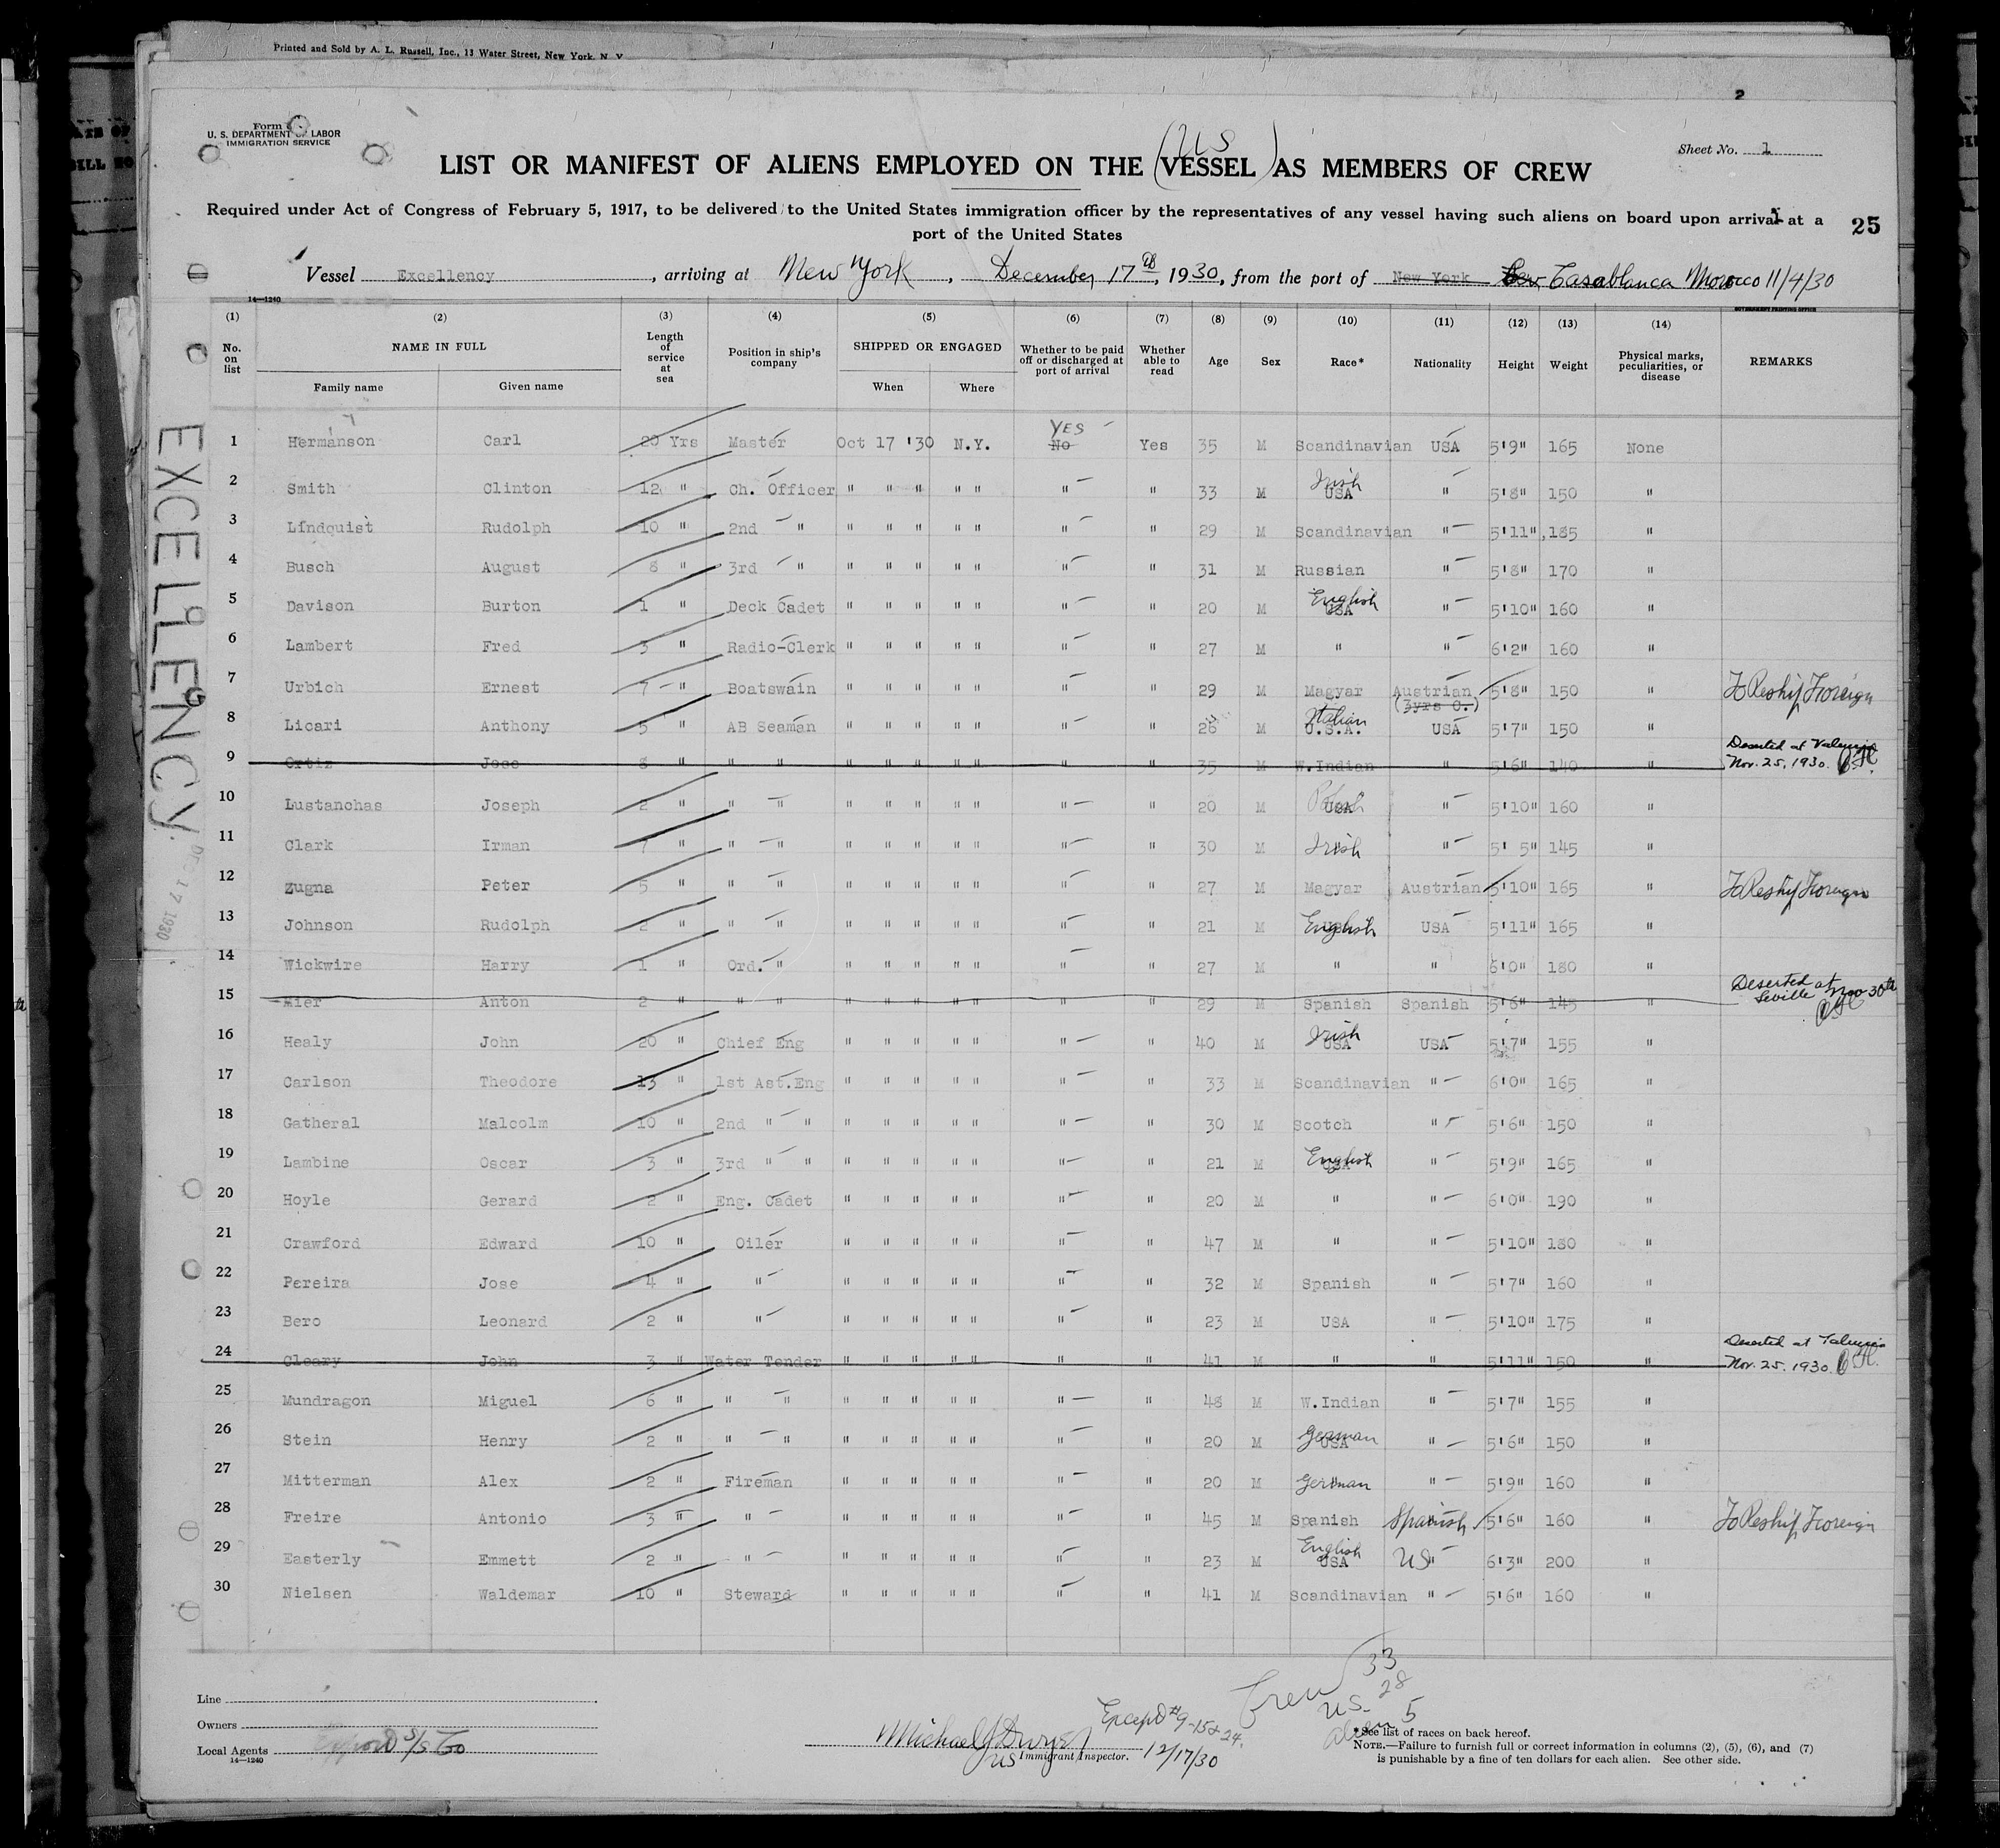 Printed and Sold by A. L. Russell, Inc., 13 Water Street, New York, N. Y.
2
Form
U. S. DEPARTMENT OF LABOR
IMMIGRATION SERVICE
Sheet No. 1
(US)
LIST OR MANIFEST OF ALIENS EMPLOYED ON THE (VESSEL) AS MEMBERS OF CREW
Required under Act of Congress of February 5, 1917, to be delivered to the United States immigration officer by the representatives of any vessel having such aliens on board upon arrival at a
port of the United States
25
Vessel Excellency, arriving at New York, December 17th, 1930, from the port of New York Casablanca Morocco 11/4/30
14—1240
GOVERNMENT PRINTING OFFICE
(1) (2) (3) (4) (5) (6) (7) (8) (9) (10) (11) (12) (13) (14)
No. on list NAME IN FULL Length of service at sea Position in ship's company SHIPPED OR ENGAGED Whether to be paid off or discharged at port of arrival Whether able to read Age Sex Race* Nationality Height Weight Physical marks, peculiarities, or disease REMARKS
Family name Given name When Where
EXCELLENCY
DEC 17 1930
1 Hermanson Carl 20 Yrs Master Oct 17 '30 N.Y. No YES Yes 35 M Scandinavian USA 5'9" 165 None
2 Smith Clinton 12 " Ch. Officer " " " " " " " 33 M USA Irish " 5'8" 150 "
3 Lindquist Rudolph 10 " 2nd " " " " " " " " 29 M Scandinavian " 5'11" 185 "
4 Busch August 8 " 3rd " " " " " " " " 31 M Russian " 5'8" 170 "
5 Davison Burton 1 " Deck Cadet " " " " " " " 20 M USA English " 5'10" 160 "
6 Lambert Fred 3 " Radio-Clerk " " " " " " " 27 M " " 6'2" 160 "
7 Urbich Ernest 7 " Boatswain " " " " " " " 29 M Magyar Austrian (3yrs O.) 5'8" 150 " To Reship Foreign
8 Licari Anthony 5 " AB Seaman " " " " " " " 26 M U.S.A. Italian USA 5'7" 150 "
9 Ortiz Jose 8 " " " " " " " " " " 35 M W.Indian " 5'6" 140 " Deserted at Valencia Nov. 25, 1930.
10 Lustanchas Joseph 2 " " " " " " " " " 20 M USA Polish " 5'10" 160 "
11 Clark Irman 7 " " " " " " " " " 30 M Irish " 5' 5" 145 "
12 Zugna Peter 5 " " " " " " " " " 27 M Magyar Austrian 5'10" 165 " To Reship Foreign
13 Johnson Rudolph 2 " " " " " " " " " 21 M English USA 5'11" 165 "
14 Wickwire Harry 1 " Ord. " " " " " " " " 27 M " " 6'0" 180 "
15 Mier Anton 2 " " " " " " " " " " 29 M Spanish Spanish 5'6" 145 " Deserted at Seville Nov 30th
16 Healy John 20 " Chief Eng " " " " " " " 40 M USA Irish USA 5'7" 155 "
17 Carlson Theodore 13 " 1st Ast.Eng " " " " " " " 33 M Scandinavian " 6'0" 165 "
18 Gatheral Malcolm 10 " 2nd " " " " " " " " " 30 M Scotch " 5'6" 150 "
19 Lambine Oscar 3 " 3rd " " " " " " " " " 21 M English " 5'9" 165 "
20 Hoyle Gerard 2 " Eng. Cadet " " " " " " " 20 M " " 6'0" 190 "
21 Crawford Edward 10 " Oiler " " " " " " " 47 M " " 5'10" 180 "
22 Pereira Jose 4 " " " " " " " " " 32 M Spanish " 5'7" 160 "
23 Bero Leonard 2 " " " " " " " " " 23 M USA " 5'10" 175 "
24 Cleary John 3 " Water Tender " " " " " " " 41 M " " 5'11" 150 " Deserted at Valencia Nov. 25, 1930.
25 Mundragon Miguel 6 " " " " " " " " " " 48 M W.Indian " 5'7" 155 "
26 Stein Henry 2 " " " " " " " " " " 20 M USA German " 5'6" 150 "
27 Mitterman Alex 2 " Fireman " " " " " " " 20 M German " 5'9" 160 "
28 Freire Antonio 3 " " " " " " " " " 45 M Spanish Spanish 5'6" 160 " To Reship Foreign
29 Easterly Emmett 2 " " " " " " " " " 23 M USA English US 6'3" 200 "
30 Nielsen Waldemar 10 " Steward " " " " " " " 41 M Scandinavian " 5'6" 160 "
Crew 33
U.S. 28
Alien 5
Line
Owners
Local Agents Export S/S Co
14—1240
Except # 9-15 & 24.
Michael J Dwyer
US Immigrant Inspector. 12/17/30
*See list of races on back hereof.
NOTE.—Failure to furnish full or correct information in columns (2), (5), (6), and (7)
is punishable by a fine of ten dollars for each alien. See other side.